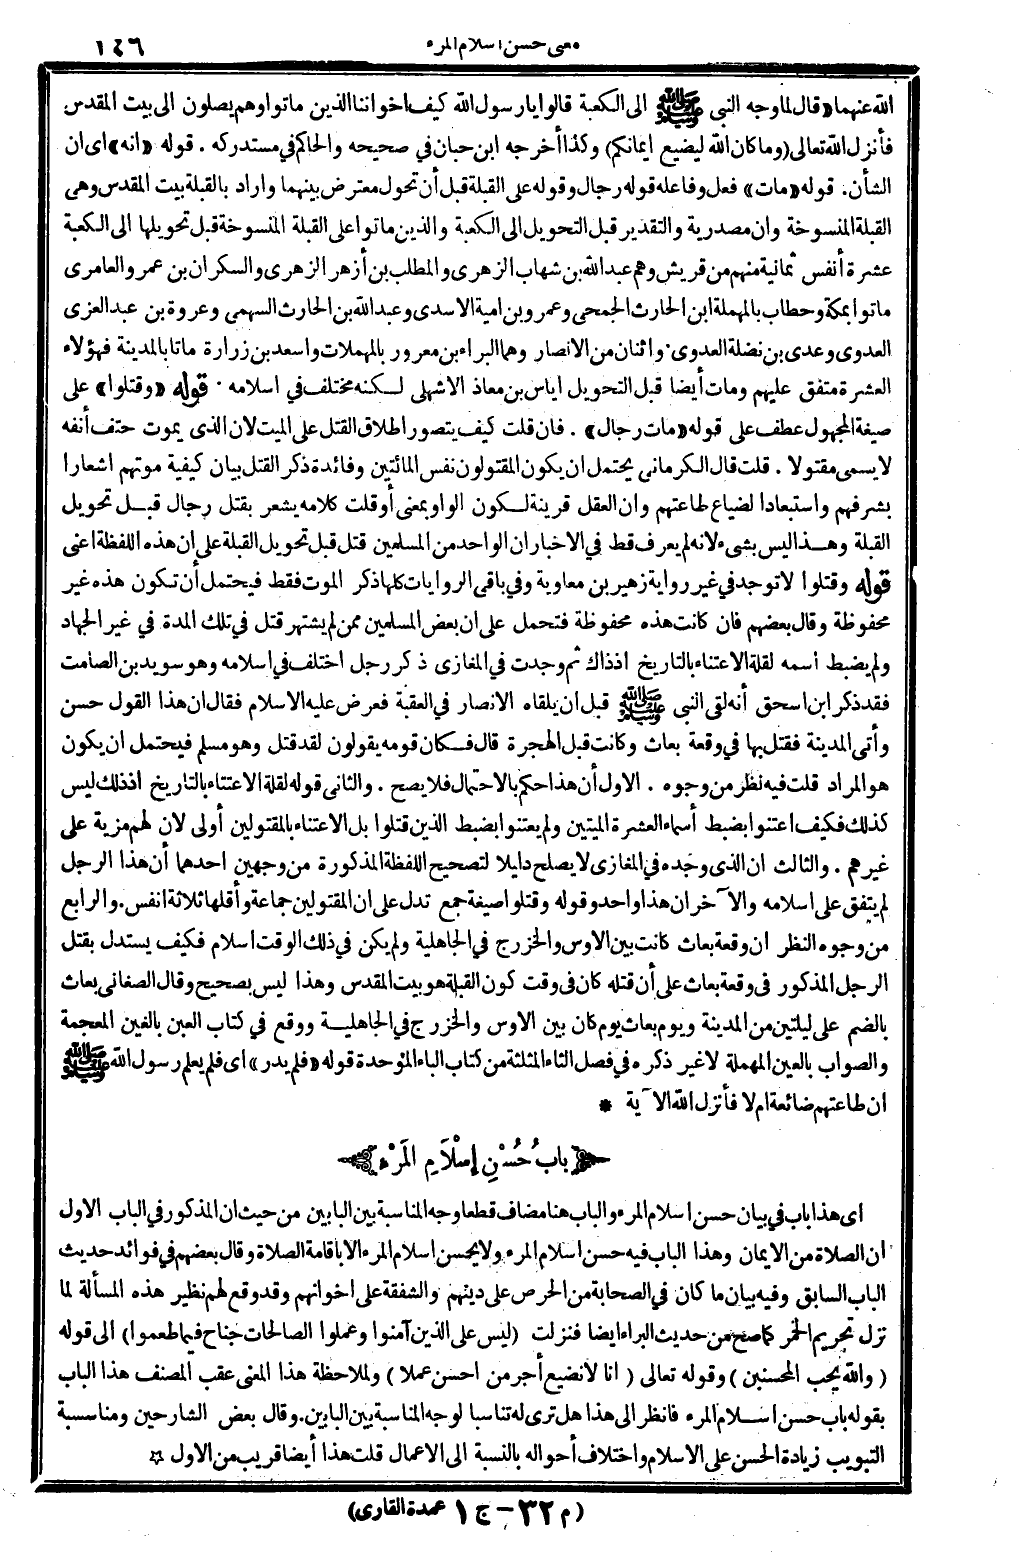 معنى حسن اسلام المرء ٢٤٩
الله عنهما «قال لما وجه النبي ﷺ الى الكعبة قالوا يارسول الله كيف اخواننا الذين ماتوا وهم يصلون الى بيت المقدس
فأنزل الله تعالى (وما كان الله ليضيع ايمانكم) وكذا أخرجه ابن حبان في صحيحه والحاكم في مستدركه . قوله «انه» اى ان
الشأن. قوله «مات» فعل وفاعله قوله رجال وقوله على القبلة قبل أن تحول معترض بينهما واراد بالقبلة بيت المقدس وهى
القبلة المنسوخة وان مصدرية والتقدير قبل التحويل الى الكعبة والذين ماتوا على القبلة المنسوخة قبل تحويلها الى الكعبة
عشرة أنفس ثمانية منهم من قريش وهم عبد الله بن شهاب الزهرى والمطلب بن أزهر الزهرى والسكران بن عمرو العامرى
ماتوا بمكة وحطاب بالمهملة ابن الحارث الجمحى وعمرو بن امية الاسدى وعبد الله بن الحارث السهمى وعروة بن عبد العزى
العدوى وعدى بن نضلة العدوى. واثنان من الانصار وهما البراء بن معرور بالمهملات واسعد بن زرارة ماتا بالمدينة فهؤلاء
العشرة متفق عليهم ومات أيضا قبل التحويل اياس بن معاذ الاشهلى لكنه مختلف في اسلامه . قوله «وقتلوا» على
صيغة المجهول عطف على قوله «مات رجال» . فان قلت كيف يتصور اطلاق القتل على الميت لان الذى يموت حتف أنفه
لا يسمى مقتولا . قلت قال الكرمانى يحتمل ان يكون المقتولون نفس المائتين وفائدة ذكر القتل بيان كيفية موتهم اشعارا
بشرفهم واستبعادا لضياع طاعتهم وان العقل قرينة لكون الواو بمعنى أو قلت كلامه يشعر بقتل رجال قبل تحويل
القبلة وهذا ليس بشىء لانه لم يعرف قط في الاخبار ان الواحد من المسلمين قتل قبل تحويل القبلة على ان هذه اللفظة اعنى
قوله وقتلوا لا توجد في غير رواية زهير بن معاوية وفي باقى الروايات كلها ذكر الموت فقط فيحتمل أن تكون هذه غير
محفوظة وقال بعضهم فان كانت هذه محفوظة فتحمل على ان بعض المسلمين ممن لم يشتهر قتل في تلك المدة في غير الجهاد
ولم يضبط اسمه لقلة الاعتناء بالتاريخ اذذاك ثم وجدت في المغازى ذكر رجل اختلف في اسلامه وهو سويد بن الصامت
فقد ذكر ابن اسحق أنه لقى النبي ﷺ قبل ان يلقاه الانصار في العقبة فعرض عليه الاسلام فقال ان هذا القول حسن
وأتى المدينة فقتل بها في وقعة بعاث وكانت قبل الهجرة قال فكان قومه يقولون لقد قتل وهو مسلم فيحتمل ان يكون
هو المراد قلت فيه نظر من وجوه . الاول أن هذا حكم بالاحتمال فلا يصح . والثانى قوله لقلة الاعتناء بالتاريخ اذ ذلك ليس
كذلك فكيف اعتنوا بضبط أسماء العشرة الميتين ولم يعتنوا بضبط الذين قتلوا بل الاعتناء بالمقتولين أولى لان لهم مزية على
غيرهم . والثالث ان الذى وجده في المغازى لا يصلح دليلا لتصحيح اللفظة المذكورة من وجهين احدهما أن هذا الرجل
لم يتفق على اسلامه والآخر ان هذا واحد وقوله وقتلوا صيغة جمع تدل على ان المقتولين جماعة وأقلها ثلاثة انفس. والرابع
من وجوه النظر ان وقعة بعاث كانت بين الاوس والخزرج في الجاهلية ولم يكن في ذلك الوقت اسلام فكيف يستدل بقتل
الرجل المذكور فى وقعة بعاث على أن قتله كان فى وقت كون القبلة هو بيت المقدس وهذا ليس بصحيح وقال الصغانى بعاث
بالضم على ليلتين من المدينة ويوم بعاث يوم كان بين الاوس والخزرج في الجاهلية ووقع في كتاب العين بالغين المعجمة
والصواب بالعين المهملة لا غير ذكره في فصل الثاء المثلثة من كتاب الباء الموحدة قوله «فلم يدر» اى فلم يعلم رسول الله ﷺ
ان طاعتهم ضائعة ام لا فأنزل الله الآية *
باب حُسْنِ إِسْلَامِ المَرْء
اى هذا باب في بيان حسن اسلام المرء والباب هنا مضاف قطعا وجه المناسبة بين البابين من حيث ان المذكور في الباب الاول
ان الصلاة من الايمان وهذا الباب فيه حسن اسلام المرء ولا يحسن اسلام المرء الا باقامة الصلاة وقال بعضهم في فوائد حديث
الباب السابق وفيه بيان ما كان في الصحابة من الحرص على دينهم والشفقة على اخوانهم وقد وقع لهم نظير هذه المسألة لما
نزل تحريم الخمر كما صح من حديث البراء ايضا فنزلت (ليس على الذين آمنوا وعملوا الصالحات جناح فيما طعموا) الى قوله
(والله يحب المحسنين) وقوله تعالى (انا لا نضيع أجر من احسن عملا) ولملاحظة هذا المعنى عقب المصنف هذا الباب
بقوله باب حسن اسلام المرء فانظر الى هذا هل ترى له تناسبا لوجه المناسبة بين البابين. وقال بعض الشارحين ومناسبة
التبويب زيادة الحسن على الاسلام واختلاف أحواله بالنسبة الى الاعمال قلت هذا أيضا قريب من الاول ☆
(م ٣٢ – ج ١ عمدة القارى)